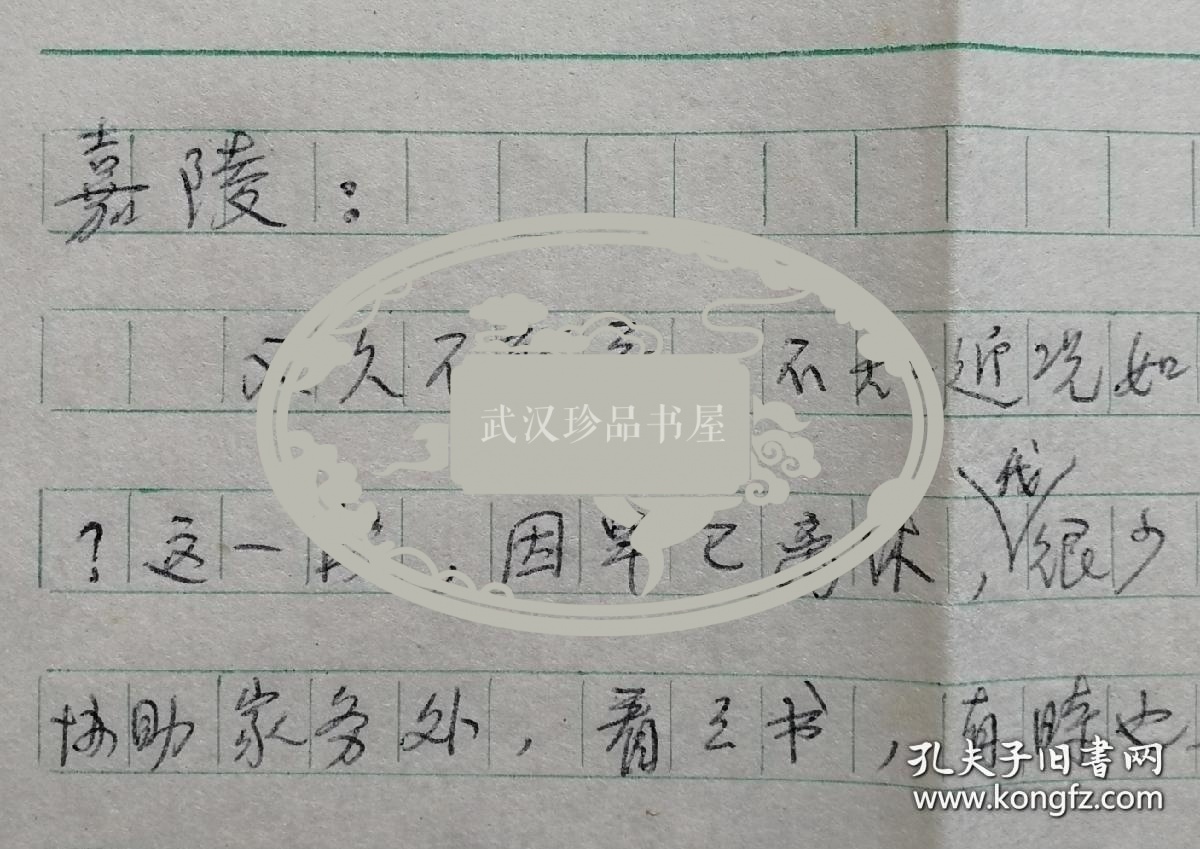 嘉陵：
久不
不知近况如
武汉珍品书屋
？这一
因早已离休，我很少
协助家务外，看看书，有时也
孔夫子旧书网
www.kongfz.com